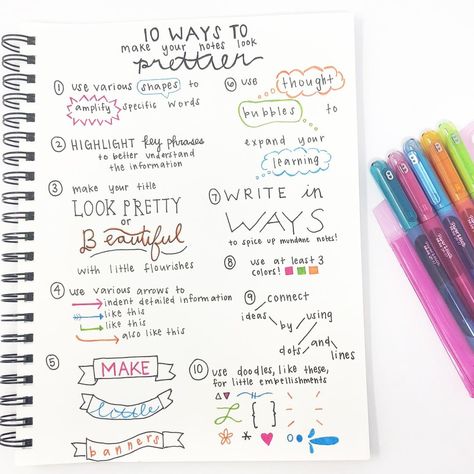 10 WAYS TO
make your notes look
prettier
① use various shapes to
amplify specific words
② HIGHLIGHT key phrases
to better understand
the information
③ make your title
LOOK PRETTY
or
Beautiful
with little flourishes
④ use various arrows to
indent detailed information
like this
like this
also like this
⑤ MAKE
little
banners
⑥ use thought
bubbles to
expand your
learning
⑦ WRITE in
WAYS
to spice up mundane notes!
⑧ use at least 3
colors!
⑨ connect
ideas by using
dots and lines
⑩ use doodles, like these,
for little embellishments